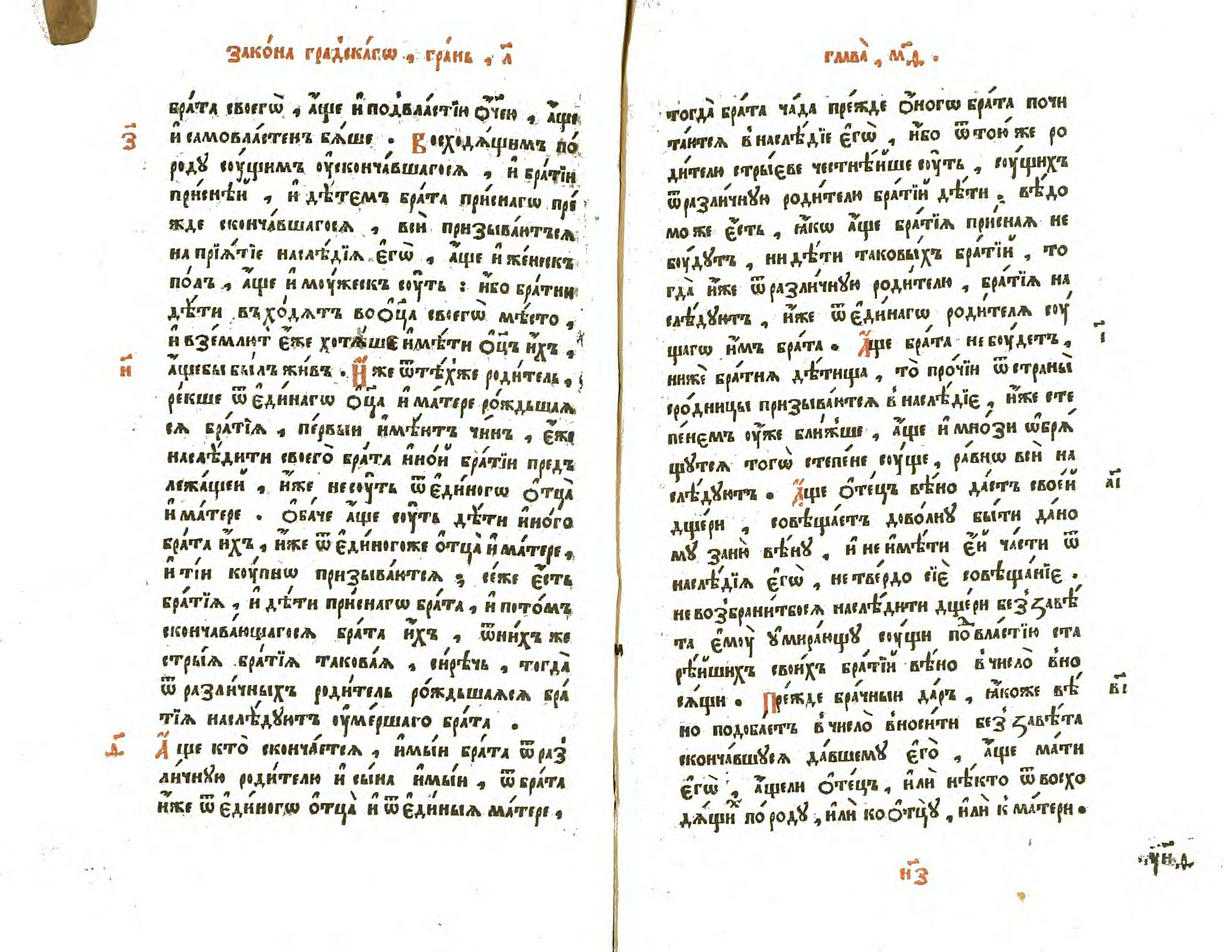 Зако́на градска́гѡ , гра́нь , л҃
бра́та своегѡ̀ , а҆́ще и҆ подвла́стїю ѻ҆́ч҃ею , а҆́ще
з҃
и҆ самовла́стенъ бѧ́ше . Восходѧ́щимъ по́
роду сꙋ́щимъ ᲂу҆сконча́вшагосѧ , и҆ бра́тїи
при́снѣй , и҆ дѣ́темъ бра́та при́снагѡ пре́
жде сконча́вшагосѧ , всѝ призыва́ютъсѧ
на прїѧ́тїе наслѣ́дїѧ є҆гѡ̀ , а҆́ще и҆ же́нескъ
по́лъ , а҆́ще и҆ мꙋ́жескъ сꙋ́ть : и҆́бо бра́тни
дѣ́ти въхо́дѧтъ во ѻ҆ц҃а̀ своегѡ̀ мѣ́сто ,
и҆ взе́млют є҆́же хотѧ́ше и҆мѣ́ти ѻ҆ц҃ъ и҆́хъ ,
и҃
а҆́щебы бы́лъ жи́въ . И҆́же ѿтѣ́хже роди́тель ,
ре́кше ѿ є҆ди́нагѡ ѻ҆ц҃а̀ и҆ ма́тере ро́ждьшаѧ
сѧ бра́тїѧ , пе́рвыи и҆мѣ́ютъ чи́нъ , є҆́же
наслѣ́дити своего̀ бра́та и҆но́й бра́тїи предъ
лежа́щей , и҆́же несꙋ́ть ѿ є҆ди́ногѡ ѻ҆тца̀
и҆ ма́тере . Ѻ҆ба́че а҆́ще сꙋ́ть дѣ́ти и҆но́го
бра́та и҆́хъ , и҆́же ѿ є҆ди́ногоже ѻ҆тца̀ и҆ ма́тере ,
и҆ ті́и кꙋ́пнѡ призыва́ютсѧ ; се́же є҆́сть
бра́тїѧ , и҆ дѣ́ти при́снагѡ бра́та , и҆ пото́мъ
скончава́ющагосѧ бра́та и҆́хъ , ѿни́хъ же
стры́ѧ бра́тїѧ такова́ѧ , си́рѣчь , тогда̀
ѿ разли́чныхъ роди́тель ро́ждьшаѧсѧ бра́
тїѧ наслѣ́дꙋютъ ᲂу҆ме́ршаго бра́та .
д҃
А҆́ще кто̀ сконча́етсѧ , и҆мы́й бра́та ѿраз
ли́чнꙋю роди́телю и҆ сы́на и҆мы́й , ѿ бра́та
и҆́же ѿ є҆ди́ногѡ ѻ҆тца̀ и҆ ѿ є҆ди́ныѧ ма́тере ,
глава̀ , м҃д .
тогда̀ бра́та ча́да пре́жде ѻ҆́ногѡ бра́та почи
та́ютсѧ в наслѣ́дїе є҆гѡ̀ , и҆́бо ѿ тою́ же ро
ди́телю стры́еве честнѣ́йше сꙋ́ть , сꙋ́щихъ
ѿ разли́чнꙋю роди́телю бра́тїй дѣ́ти . вѣ́до
мо же є҆́сть , ꙗ҆́кѡ а҆́ще бра́тїѧ при́снаѧ не
бꙋ́дꙋтъ , ни дѣ́ти таковы́хъ бра́тїй , то
гда̀ и҆́же ѿ разли́чнꙋю роди́телю , бра́тїѧ на
слѣ́дꙋютъ , и҆́же ѿ є҆ди́нагѡ роди́телѧ сꙋ́
і҃
щагѡ и҆́мъ бра́та . А҆́ще бра́та не бꙋ́детъ ,
нижѐ бра́тнѧ дѣ́тища , то̀ про́чїи ѿ страны̀
сро́дницы призыва́ютсѧ в наслѣ́дїе , и҆́же сте
пе́немъ ᲂу҆́же бли́жше , а҆́ще и҆ мно́зи ѡ҆брѧ́
щꙋтсѧ тогѡ̀ степе́не сꙋ́ще , ра́внѡ всѝ на
а҃і
слѣ́дꙋютъ . А҆́ще ѻ҆те́цъ вѣ́но да́стъ свое́й
дщери , совѣща́етъ дово́лнꙋ бы́ти да́но
мꙋ за ню̀ вѣ́нꙋ , и҆ не и҆мѣ́ти є҆́й ча́сти ѿ
наслѣ́дїѧ є҆гѡ̀ , не тве́рдо сїѐ совѣща́нїе .
не возбрани́тбосѧ наслѣ́дити дще́ри без̾ завѣ́
та є҆мꙋ̀ ᲂу҆мира́ющꙋ сꙋ́щи под̾ вла́стїю ста
рѣ́йшихъ свои́хъ бра́тїй вѣ́но в число̀ вно
в҃і
сѧ́щи . Пре́жде бра́чный да́ръ , ꙗ҆́коже вѣ́
но подоба́етъ в число̀ вноси́ти без̾ завѣ́та
сконча́вшꙋсѧ да́вшемꙋ є҆го̀ , а҆́ще ма́ти
є҆гѡ̀ , а҆́щели ѻ҆те́цъ , и҆лѝ нѣ́кто ѿ восхо
дѧ́щих̾ по ро́дꙋ , и҆лѝ ко ѻ҆тцꙋ̀ , и҆лѝ к ма́тери .
н҃з